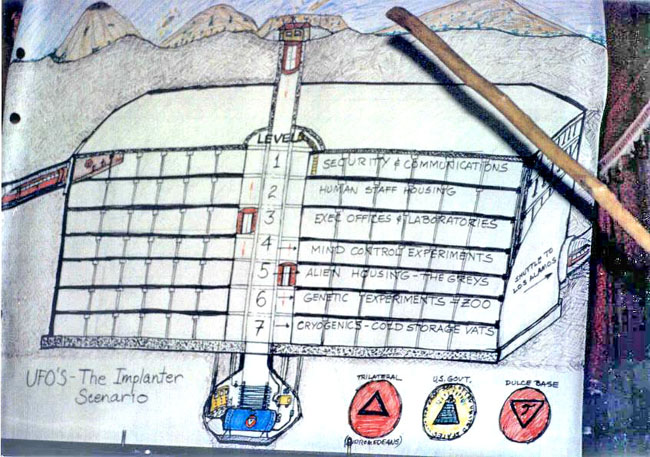 LEVEL
1 SECURITY & COMMUNICATIONS
2 HUMAN STAFF HOUSING
3 EXEC OFFICES & LABORATORIES
4 MIND CONTROL EXPERIMENTS
5 ALIEN HOUSING - THE GREYS
6 GENETIC EXPERIMENTS - ZOO
7 CRYOGENICS - COLD STORAGE VATS
SHUTTLE TO
LOS ALAMOS
UFO'S - The Implanter
Scenario
TRILATERAL
(ANDROMEDEANS)
U.S. GOVT.
DULCE BASE